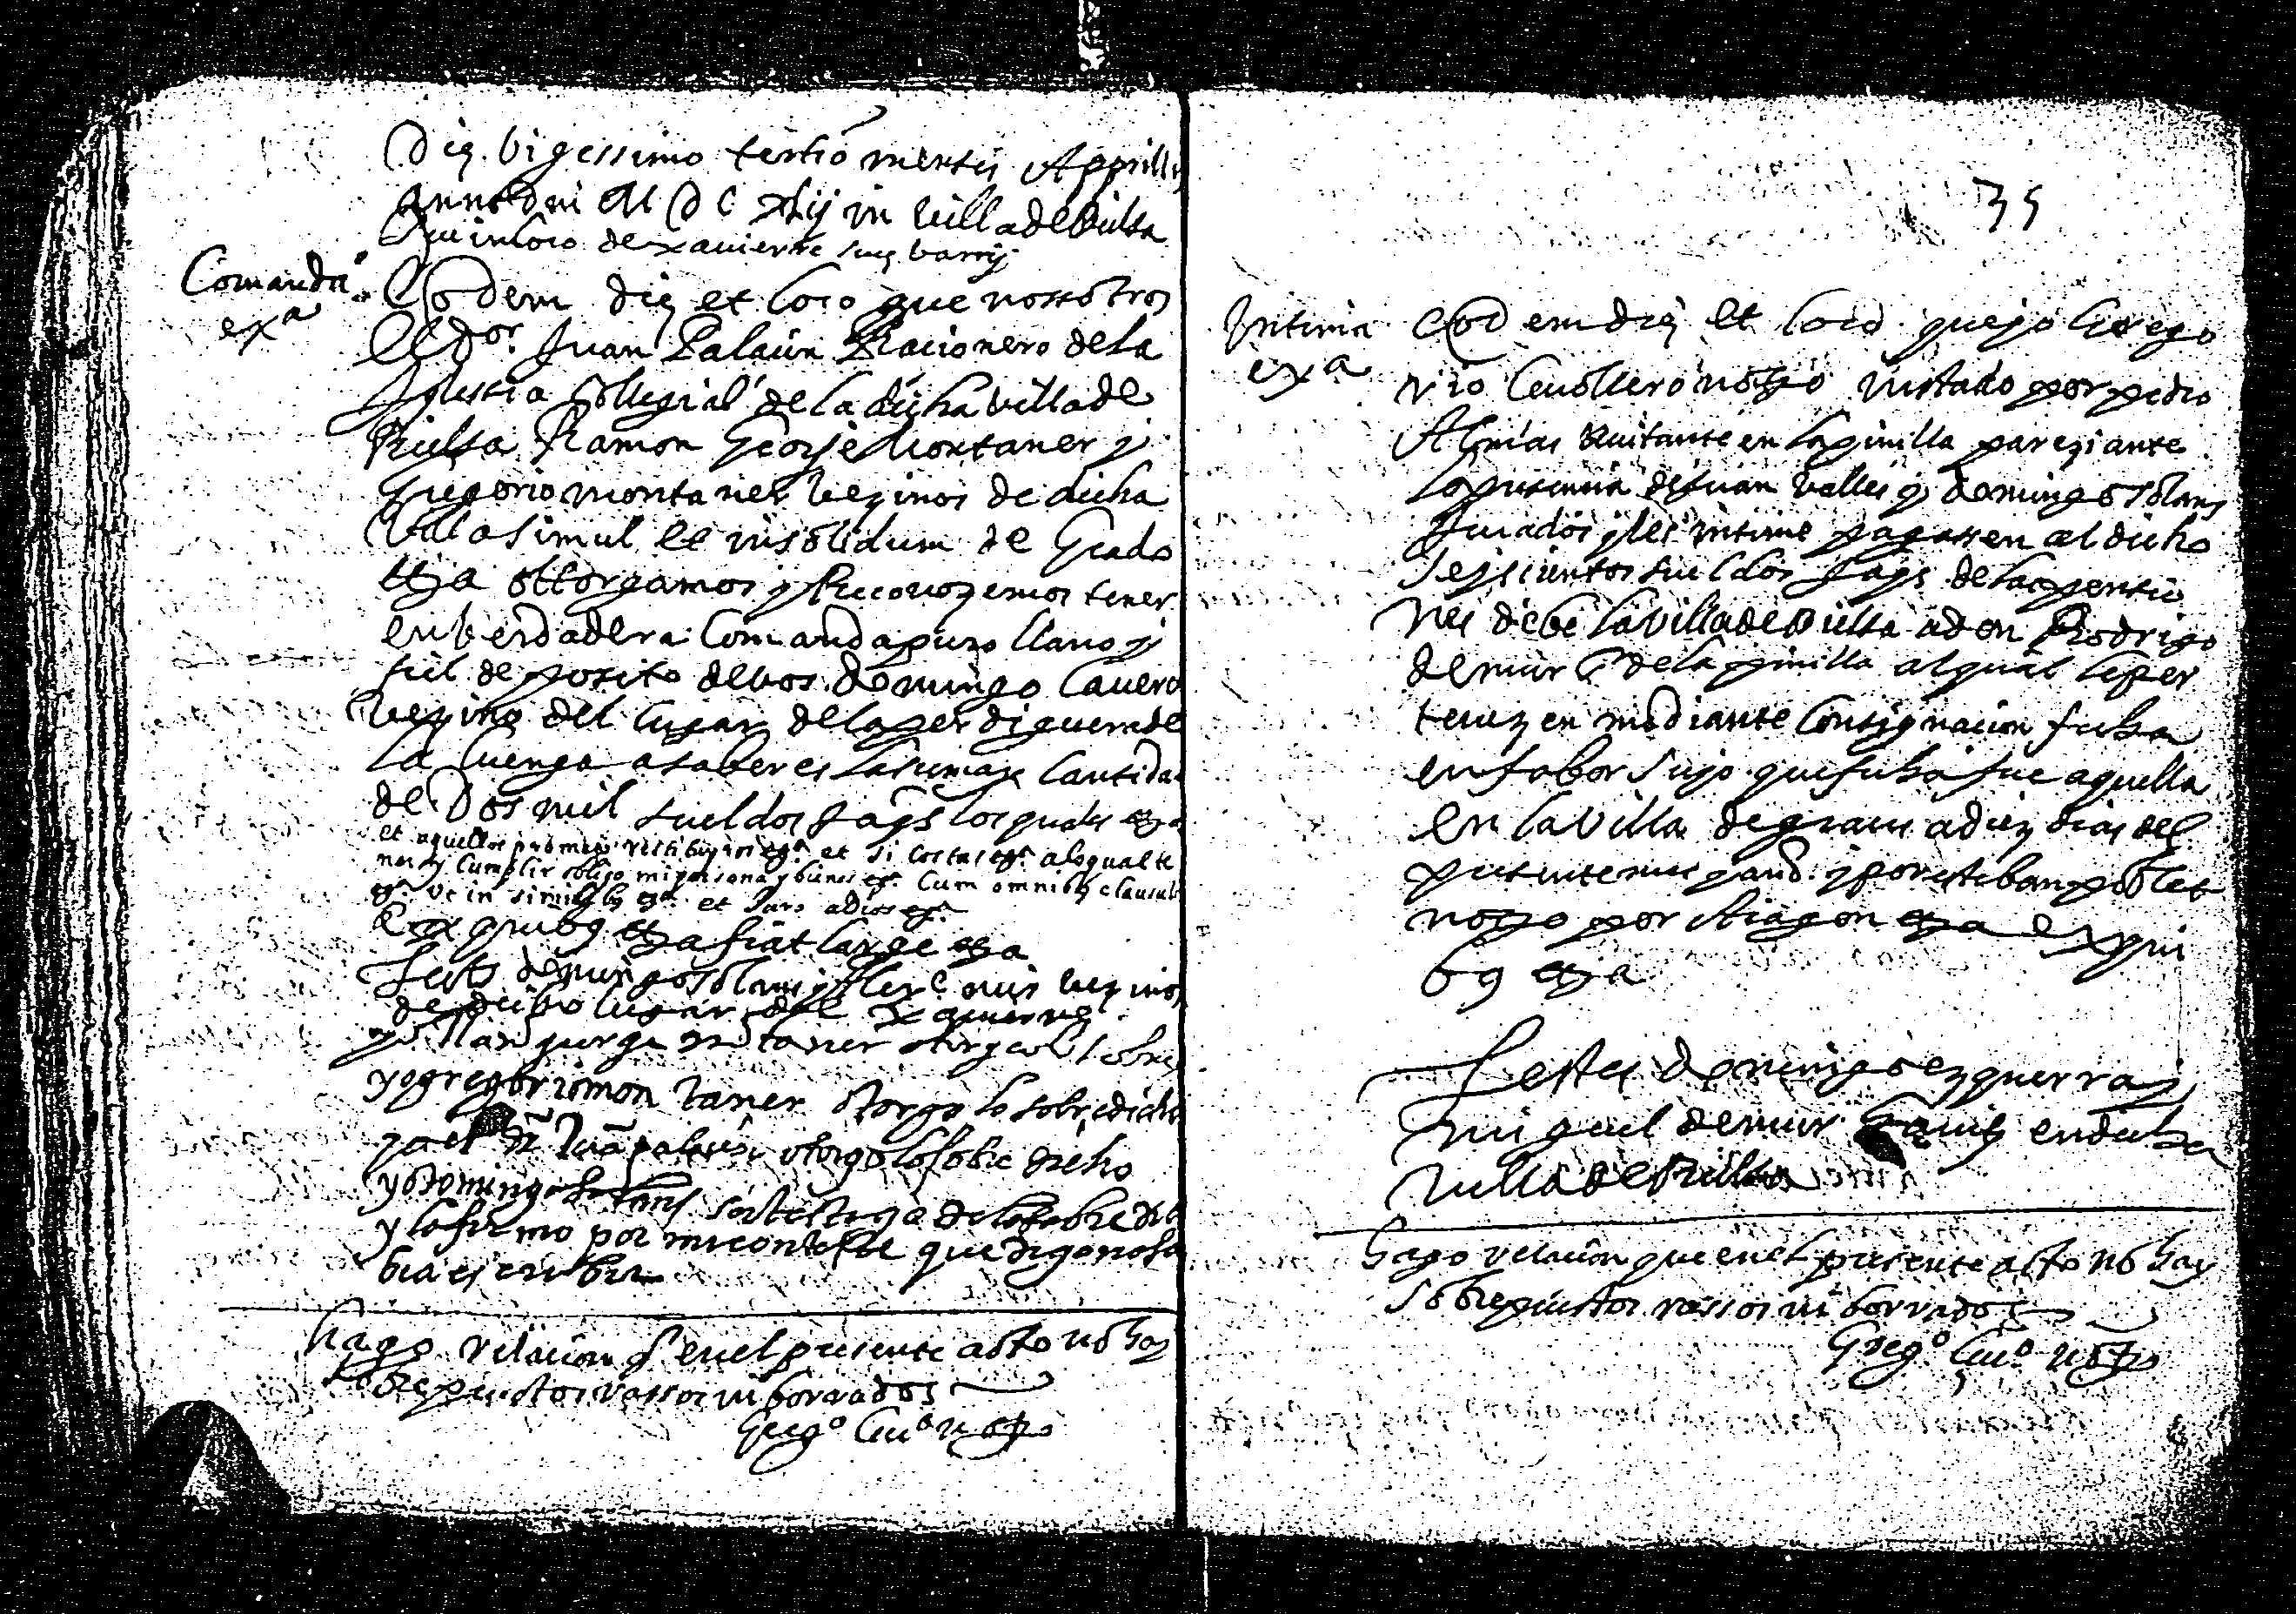 Die vigessimo tertio mensis Apprilis
anno Dni M D C xlij in villa de Bielsa
siue in loco de xauierre sui barrij
Comanda
exa
Eodem die et loco que nossotros
el Dor. Juan Palaçin Racionero de la
Iglessia Collegial de la dicha villa de
Bielsa Ramon George Montaner y
Gregorio montaner vezinos de dicha
villa simul et insolidum de Grado
etza ottorgamos y Reconozemos tener
en verdadera Comanda puro llano y
fiel deposito de vos domingo Cauero
vezino del lugar de la perdiguera de
la luenga a saber es la suma y Cantidad
de Dos mil sueldos Jaqs los quales etza
et aquellos prometo restituyros etza et si costas etza a lo qual te
ner y Cumplir obligo mi persona y bienes etza Cum omnibus clausulis
etza vt in similibus etza et Juro a dios etza
Ex quibus etza fiat large etza
Testes domingo solans y
de dicho lugar de Xauierre
yo Ramon gorge montaner otorgo lo sobre
yo gregorio montaner otorgo lo sobredicho
yo el Dr Jua palaçin otorgo lo sobre dicho
yo domingo solans soi testigo de lo sobre dicho
y lo firmo por mi conteste que digo no sa
bia escribir
hago relacion q en el presente acto no hay
sobrepuestos rassos ni borrados
Grego no
35
Intima
exa
Eodem die et loco que yo Grego
rio notro instado por pedro
Almas auitante en la pinilla pareziante
la presencia de Juan Valles y domingo solans
Jurados y les intime pagassen al dicho
seyscientos sueldos Jaqs de las pensio
nes debe la villa de Bielsa a don Rodrigo
de mur sr de la pinilla al qual le per
tenezen mediante Consignacion fecha
en fabor suyo que fecha fue aquella
en la villa de graus a diez dias del
presente mes y anno y por esteban poblet
notro por Aragon etza ex qui
bus etza
Testes domingo ezquerra y
miguel de mur en dicha
villa de Bielsa
hago relacion que en el presente acto no hay
sobrepuestos rassos ni borrados
Grego no